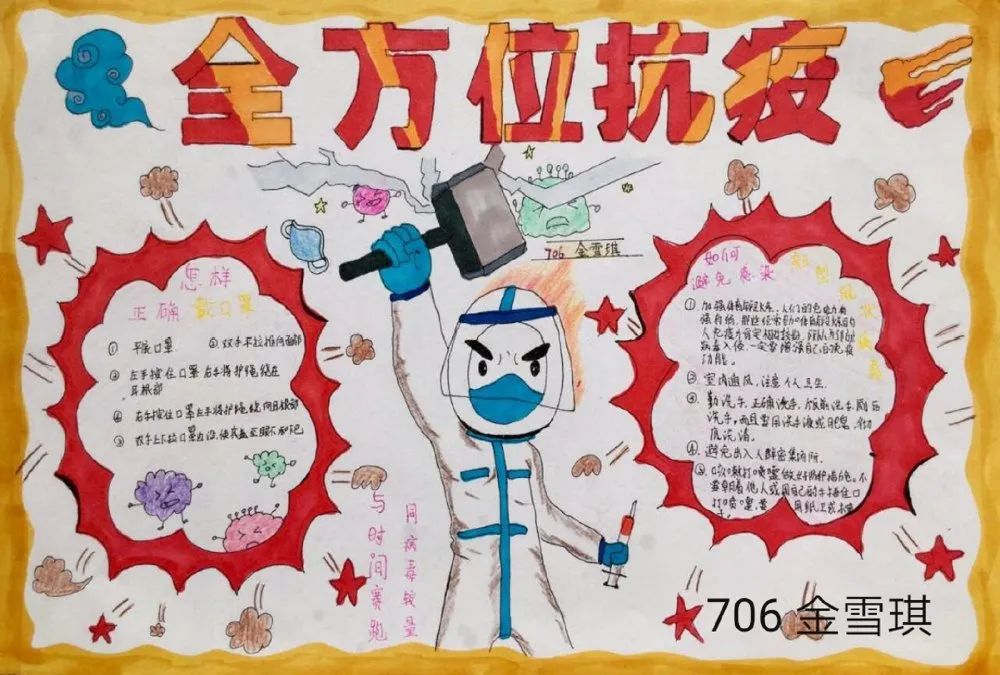 全方位抗疫
706 金雪琪
怎样
正确戴口罩
① 平展口罩
② 双手平拉推向面部
③ 左手按住口罩右手将护绳绕在
耳根部
④ 右手按住口罩左手将护绳绕向耳根部
⑤ 双手上下拉口罩边沿,使其盖至眼下和下巴
与时间赛跑
同病毒较量
如何
避免感染新型冠状病毒
① 加强体育锻炼,人们的免疫力有
强有弱,那些经常参加体育锻炼的
人免疫力肯定相对较强,
病毒入侵,一定要增强自己的免疫
功能。
② 室内通风,注意个人卫生。
③ 勤洗手、正确洗手,饭前洗手厕后
洗手,而且要用洗手液或肥皂,彻
底洗清。
④ 避免出入人群密集场所。
⑤ 咳嗽打喷嚏做好防护措施。不
要朝着他人或用自己的手捂住口
打喷嚏,要用纸巾或手
706 金雪琪